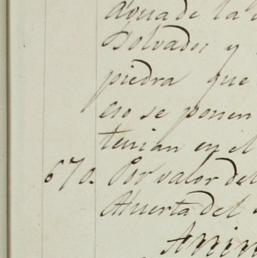 agua de la
Salvador y
piedra que
no se ponen
tenian en el
670. Por valor del
Huerta del